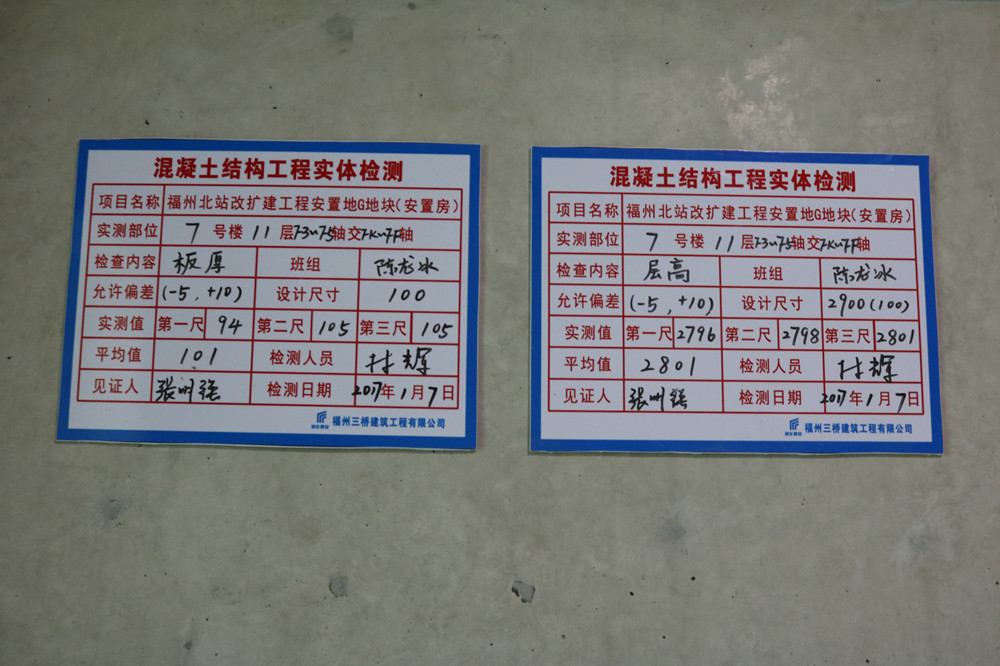 混凝土结构工程实体检测
项目名称 福州北站改扩建工程安置地G地块(安置房)
实测部位 7 号楼 11 层7-3~7-5轴交7-K~7-F轴
检查内容 板厚 班组 陈龙冰
允许偏差 (-5, +10) 设计尺寸 100
实测值 第一尺 94 第二尺 105 第三尺 105
平均值 101 检测人员
见证人 检测日期 2017年1月7日
福州三桥建筑工程有限公司
混凝土结构工程实体检测
项目名称 福州北站改扩建工程安置地G地块(安置房)
实测部位 7 号楼 11 层7-3~7-5轴交7-K~7-F轴
检查内容 层高 班组 陈龙冰
允许偏差 (-5, +10) 设计尺寸 2900(100)
实测值 第一尺 2796 第二尺 2798 第三尺 2801
平均值 2801 检测人员
见证人 检测日期 2017年1月7日
福州三桥建筑工程有限公司